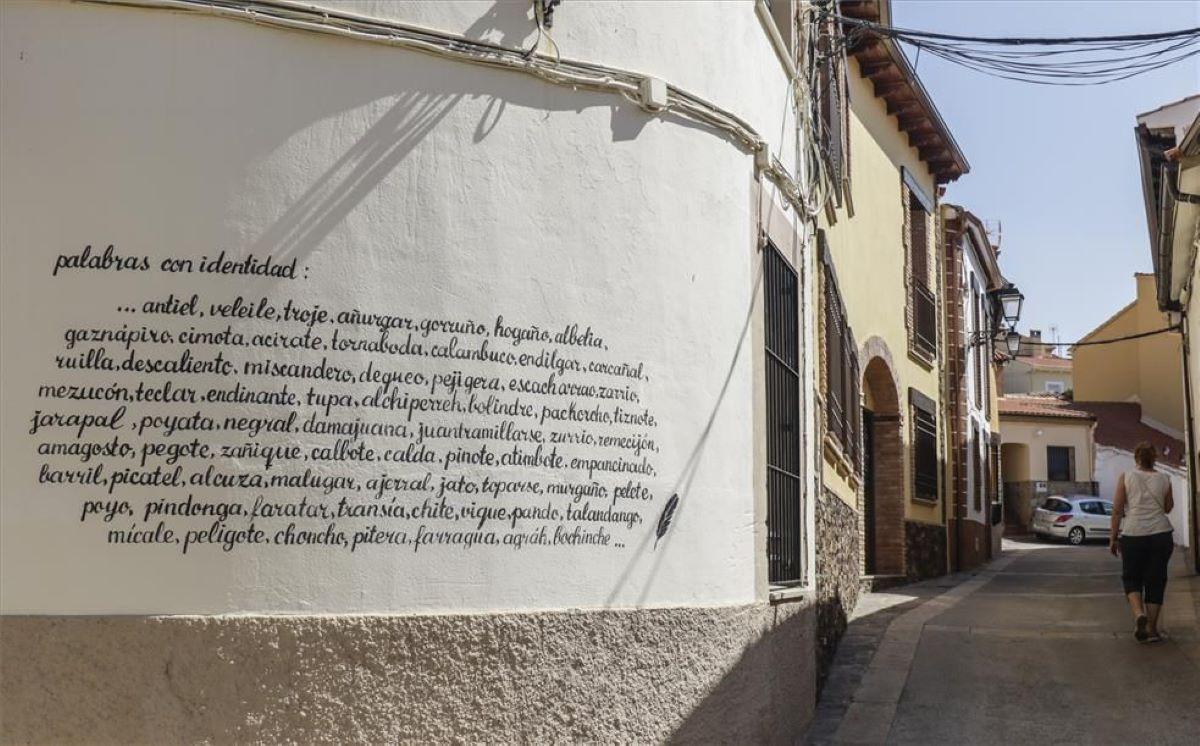 palabras con identidad :
... antiel, veleile, troje, añurgar, gorruño, hogaño, albelia,
gaznápiro, cimota, acirate, tornaboda, calambuco, endilgar, carcañal,
ruilla, descaliento, miscandero, degueo, pejigera, escachorrao, zarrio,
mezucón, teclar, endinante, tupa, alchiperreh, bolindre, pachorcho, tiznote,
jarapal, poyata, negral, damajuana, juantramillarse, zurrio, remecijón,
amagosto, pegote, zañique, calbote, calda, pinote, atimbote, empancinado,
barril, picatel, alcuza, malugar, ajerral, jato, toparse, murgaño, pelote,
poyo, pindonga, faratar, transía, chite, vigue, pando, talandango,
mícale, peligote, choncho, pitera, farragua, agráh, bochinche ...